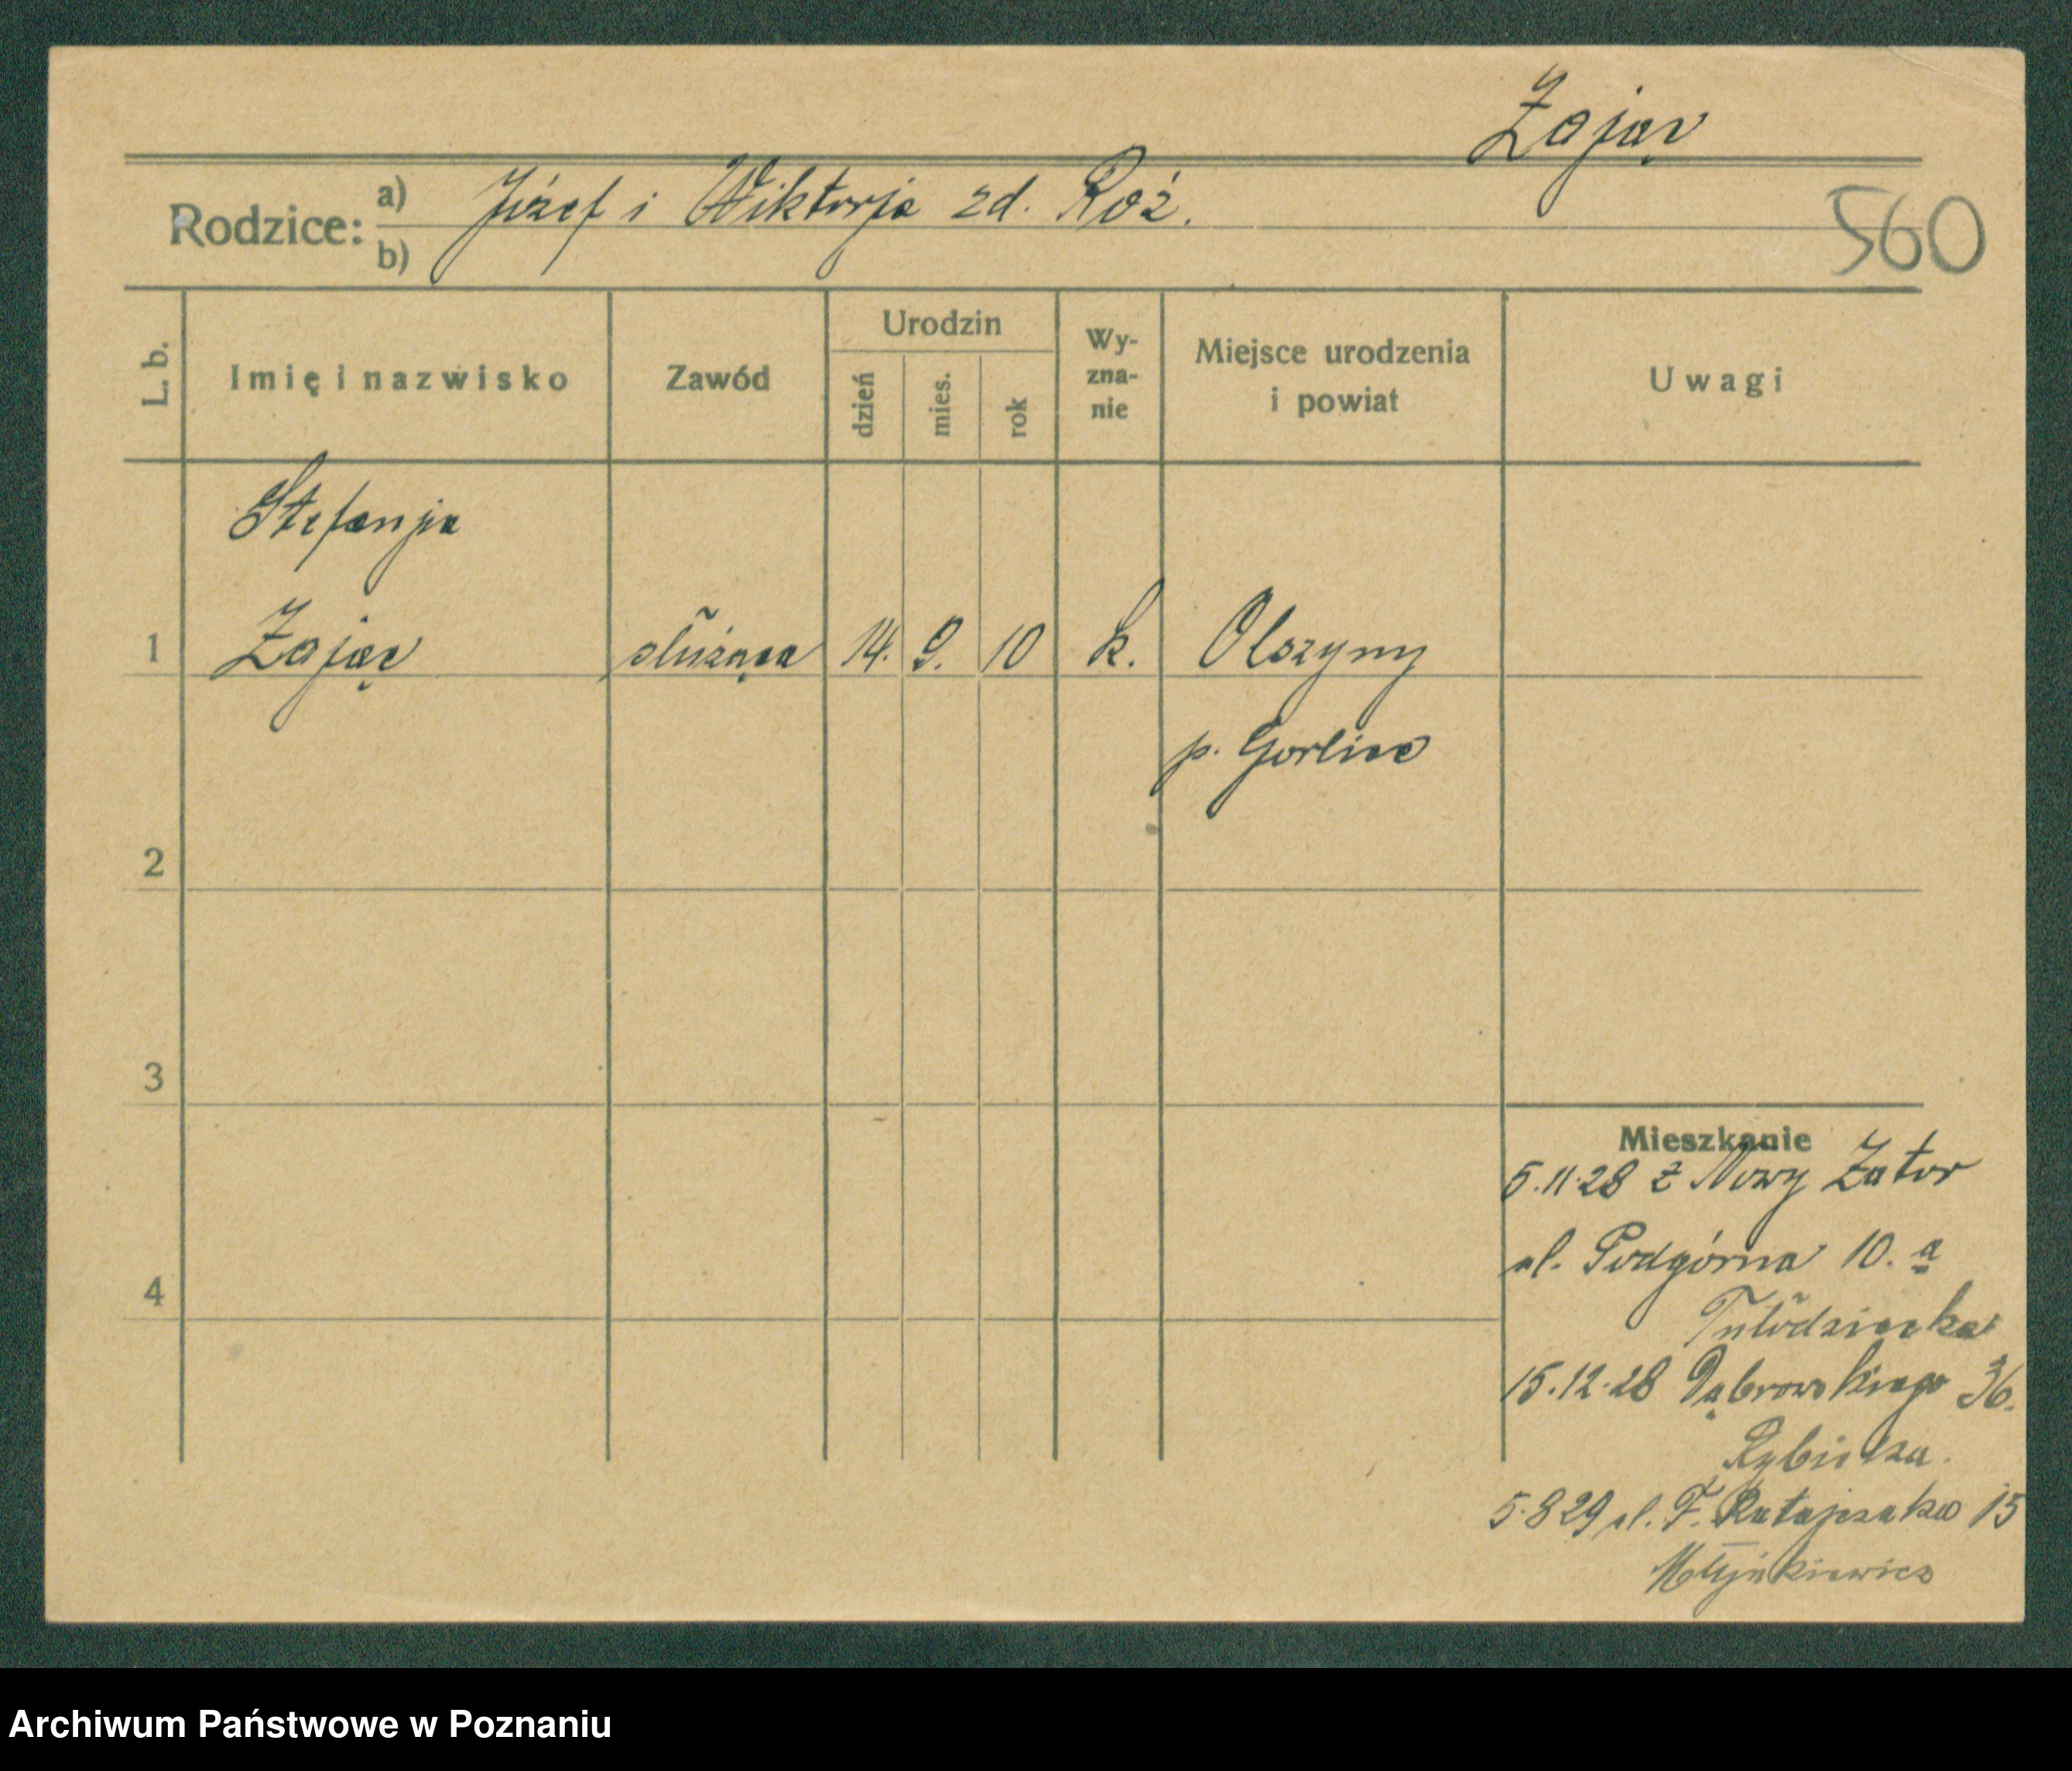 Zając
Rodzice: a) Józef i Wiktorja zd. Roź.
b)
560
L. b. Imię i nazwisko Zawód Urodzin dzień mies. rok Wy-zna-nie Miejsce urodzenia i powiat Uwagi
Stefanja
1 Zając służąca 14. 9. 10 k. Olszyny
p. Gorlice
2
3
4
Mieszkanie
5.11.28 z Nowy Zator
ul. Podgórna 10. a
Tułodziecka
15.12.28 Dąbrowskiego 36.
5.8 29 ul. F. Ratajczaka 15
Młyńkiewicz
Archiwum Państwowe w Poznaniu